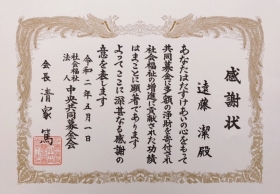 感謝状
遠藤潔殿
あなたはたすけあいの心をもって
共同募金に多額の浄財を寄付され
社会福祉の増進に貢献された功績
はまことに顕著であります
よってここに深甚なる感謝の
意を表します
令和二年五月一日
社会福祉法人 中央共同募金会
会長 清家篤